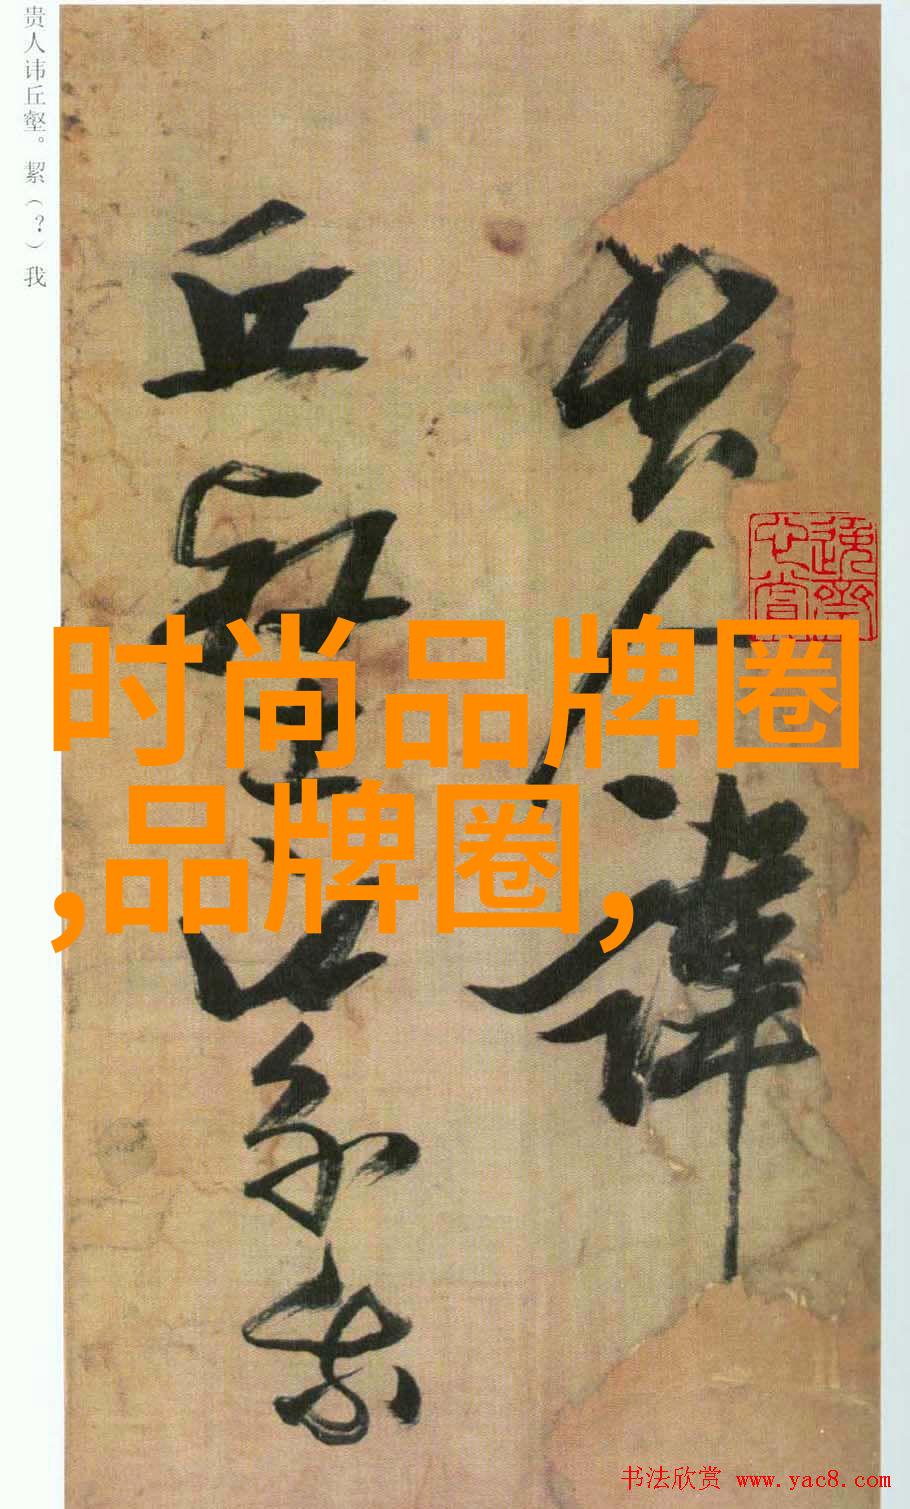 贵人讳
丘壑絜我
贵人讳丘壑。絜（？）我
时尚品牌圈
,品牌圈,
书法欣赏 www.yac8.com